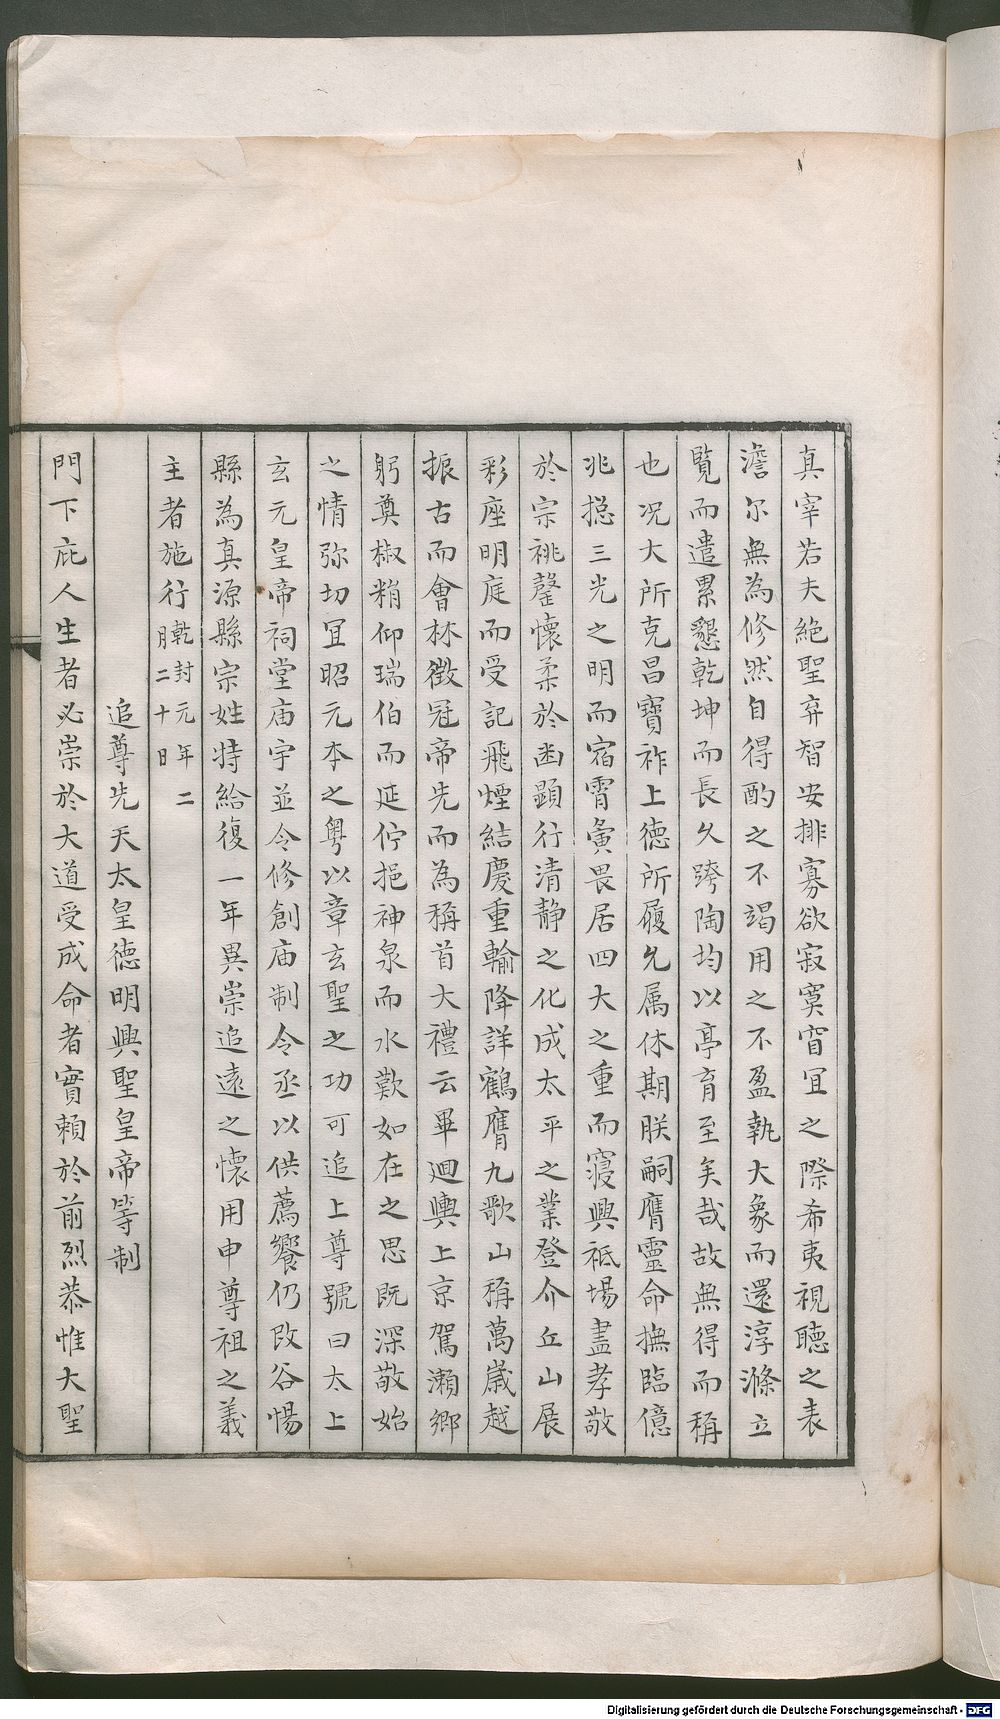 真宰若夫絶聖弃智安排寡欲寂寞窅冝之際希夷視聽之表
澹尔無為修然自得酌之不竭用之不盈執大象而還淳滌立
覽而遣累懇乾坤而長久跨陶均以亭育至矣哉故無得而稱
也况大所克昌寶祚上德所履允属休期朕嗣膺靈命撫臨億
兆揔三光之明而宿霄夤畏居四大之重而寢興祗場盡孝敬
於宗祧罄懷柔於幽顯行清静之化成太平之業登介丘山展
彩座明庭而受記飛煙結慶重輪降詳鶴膺九歌山稱萬嵗越
振古而會林徵冠帝先而為稱首大禮云畢廻輿上京駕瀬鄉
躬奠椒糈仰瑞伯而延佇挹神泉而水歎如在之思既深敬始
之情弥切冝昭元本之粤以章玄聖之功可追上尊號曰太上
玄元皇帝祠堂庙宇並令修創庙制令丞以供薦饗仍改谷陽
縣為真源縣宗姓特給復一年異崇追遠之懷用申尊祖之義
主者施行乾封元年二月二十日
追尊先天太皇德明興聖皇帝等制
門下庇人生者必崇於大道受成命者實賴於前烈恭惟大聖
Digitalisierung gefördert durch die Deutsche Forschungsgemeinschaft - DFG